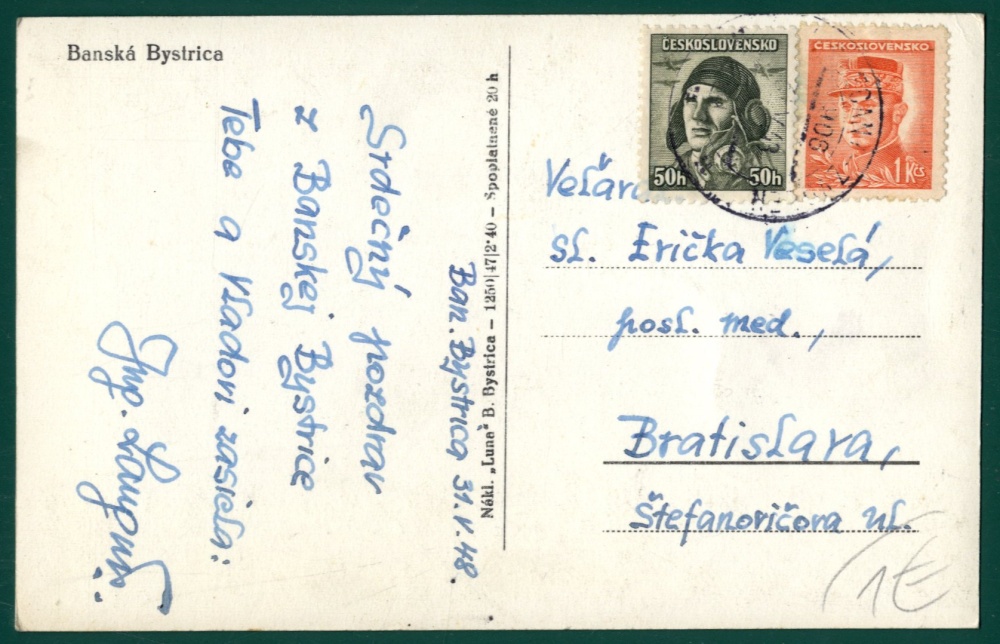 Banská Bystrica
Srdečný pozdrav
z Banskej Bystrice
Tebe a Vladovi zasiela:
Ing.
Ban. Bystrica 31.V.48.
Nákl. „Luna" B. Bystrica – 1250|47|2·40 – Spoplatnené 20 h
ČESKOSLOVENSKO
50h 50h
ČESKOSLOVENSKO
1 Kčs
sl. Erička Veselá,
posl. med.,
Bratislava,
Štefanovičova ul.
1€